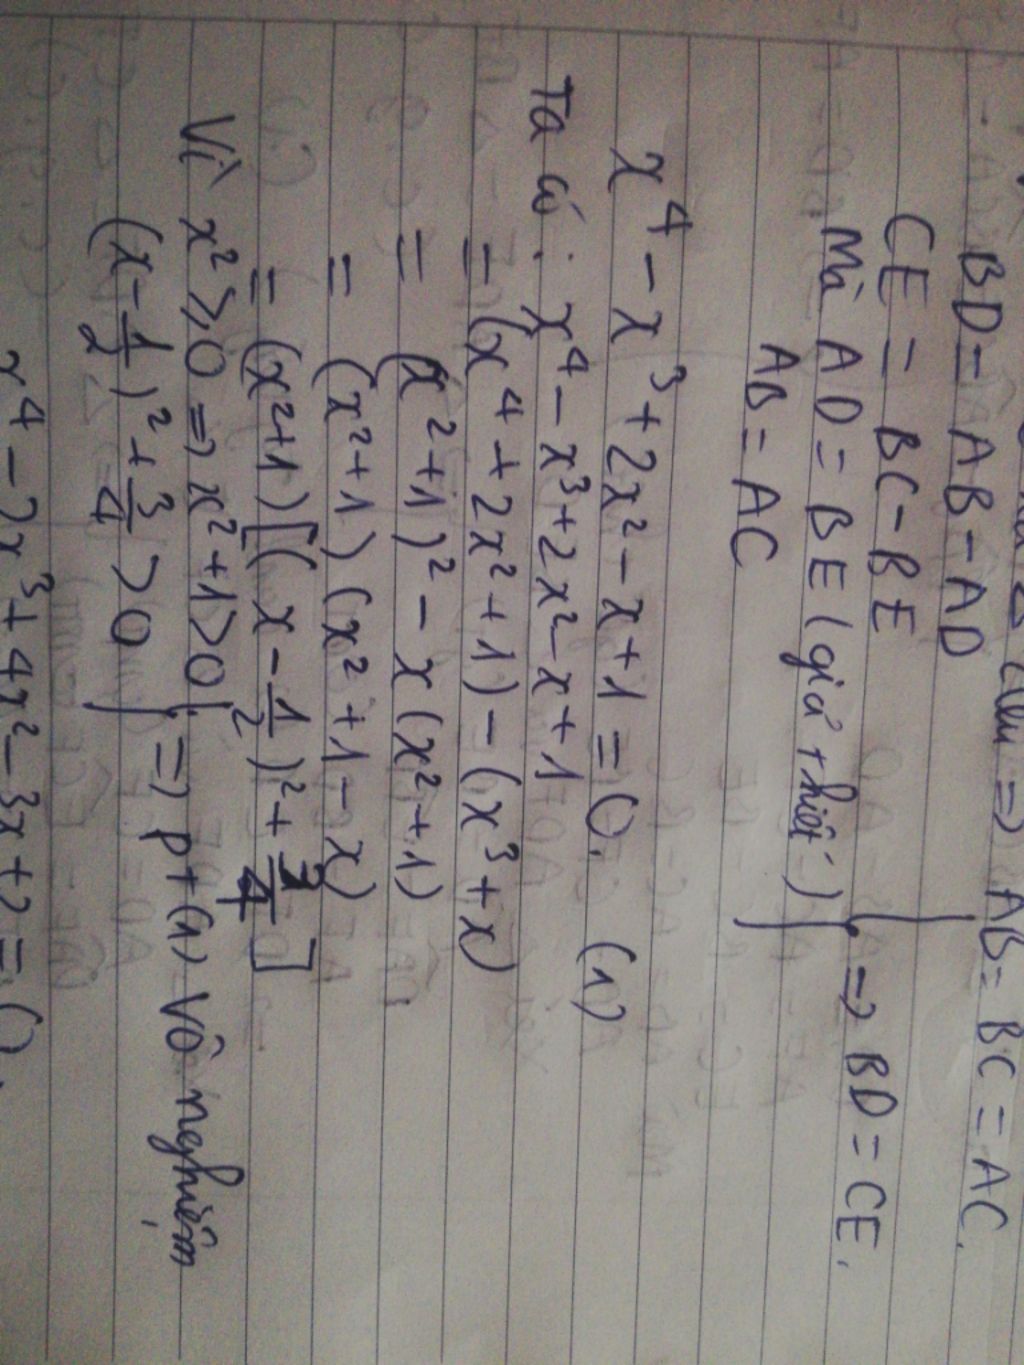 đều => AB = BC = AC.
BD = AB - AD
CE = BC - BE
Mà AD = BE (giả thiết) => BD = CE.
AB = AC
x⁴ - x³ + 2x² - x + 1 = 0. (1)
Ta có: x⁴ - x³ + 2x² - x + 1
= (x⁴ + 2x² + 1) - (x³ + x)
= (x² + 1)² - x (x² + 1)
= (x² + 1) (x² + 1 - x)
= (x² + 1) [(x - 1/2)² + 3/4]
Vì x² ≥ 0 => x² + 1 > 0
(x - 1/2)² + 3/4 > 0 => pt (1) vô nghiệm
x⁴ - 2x³ + 4x² - 3x + 2 = 0.